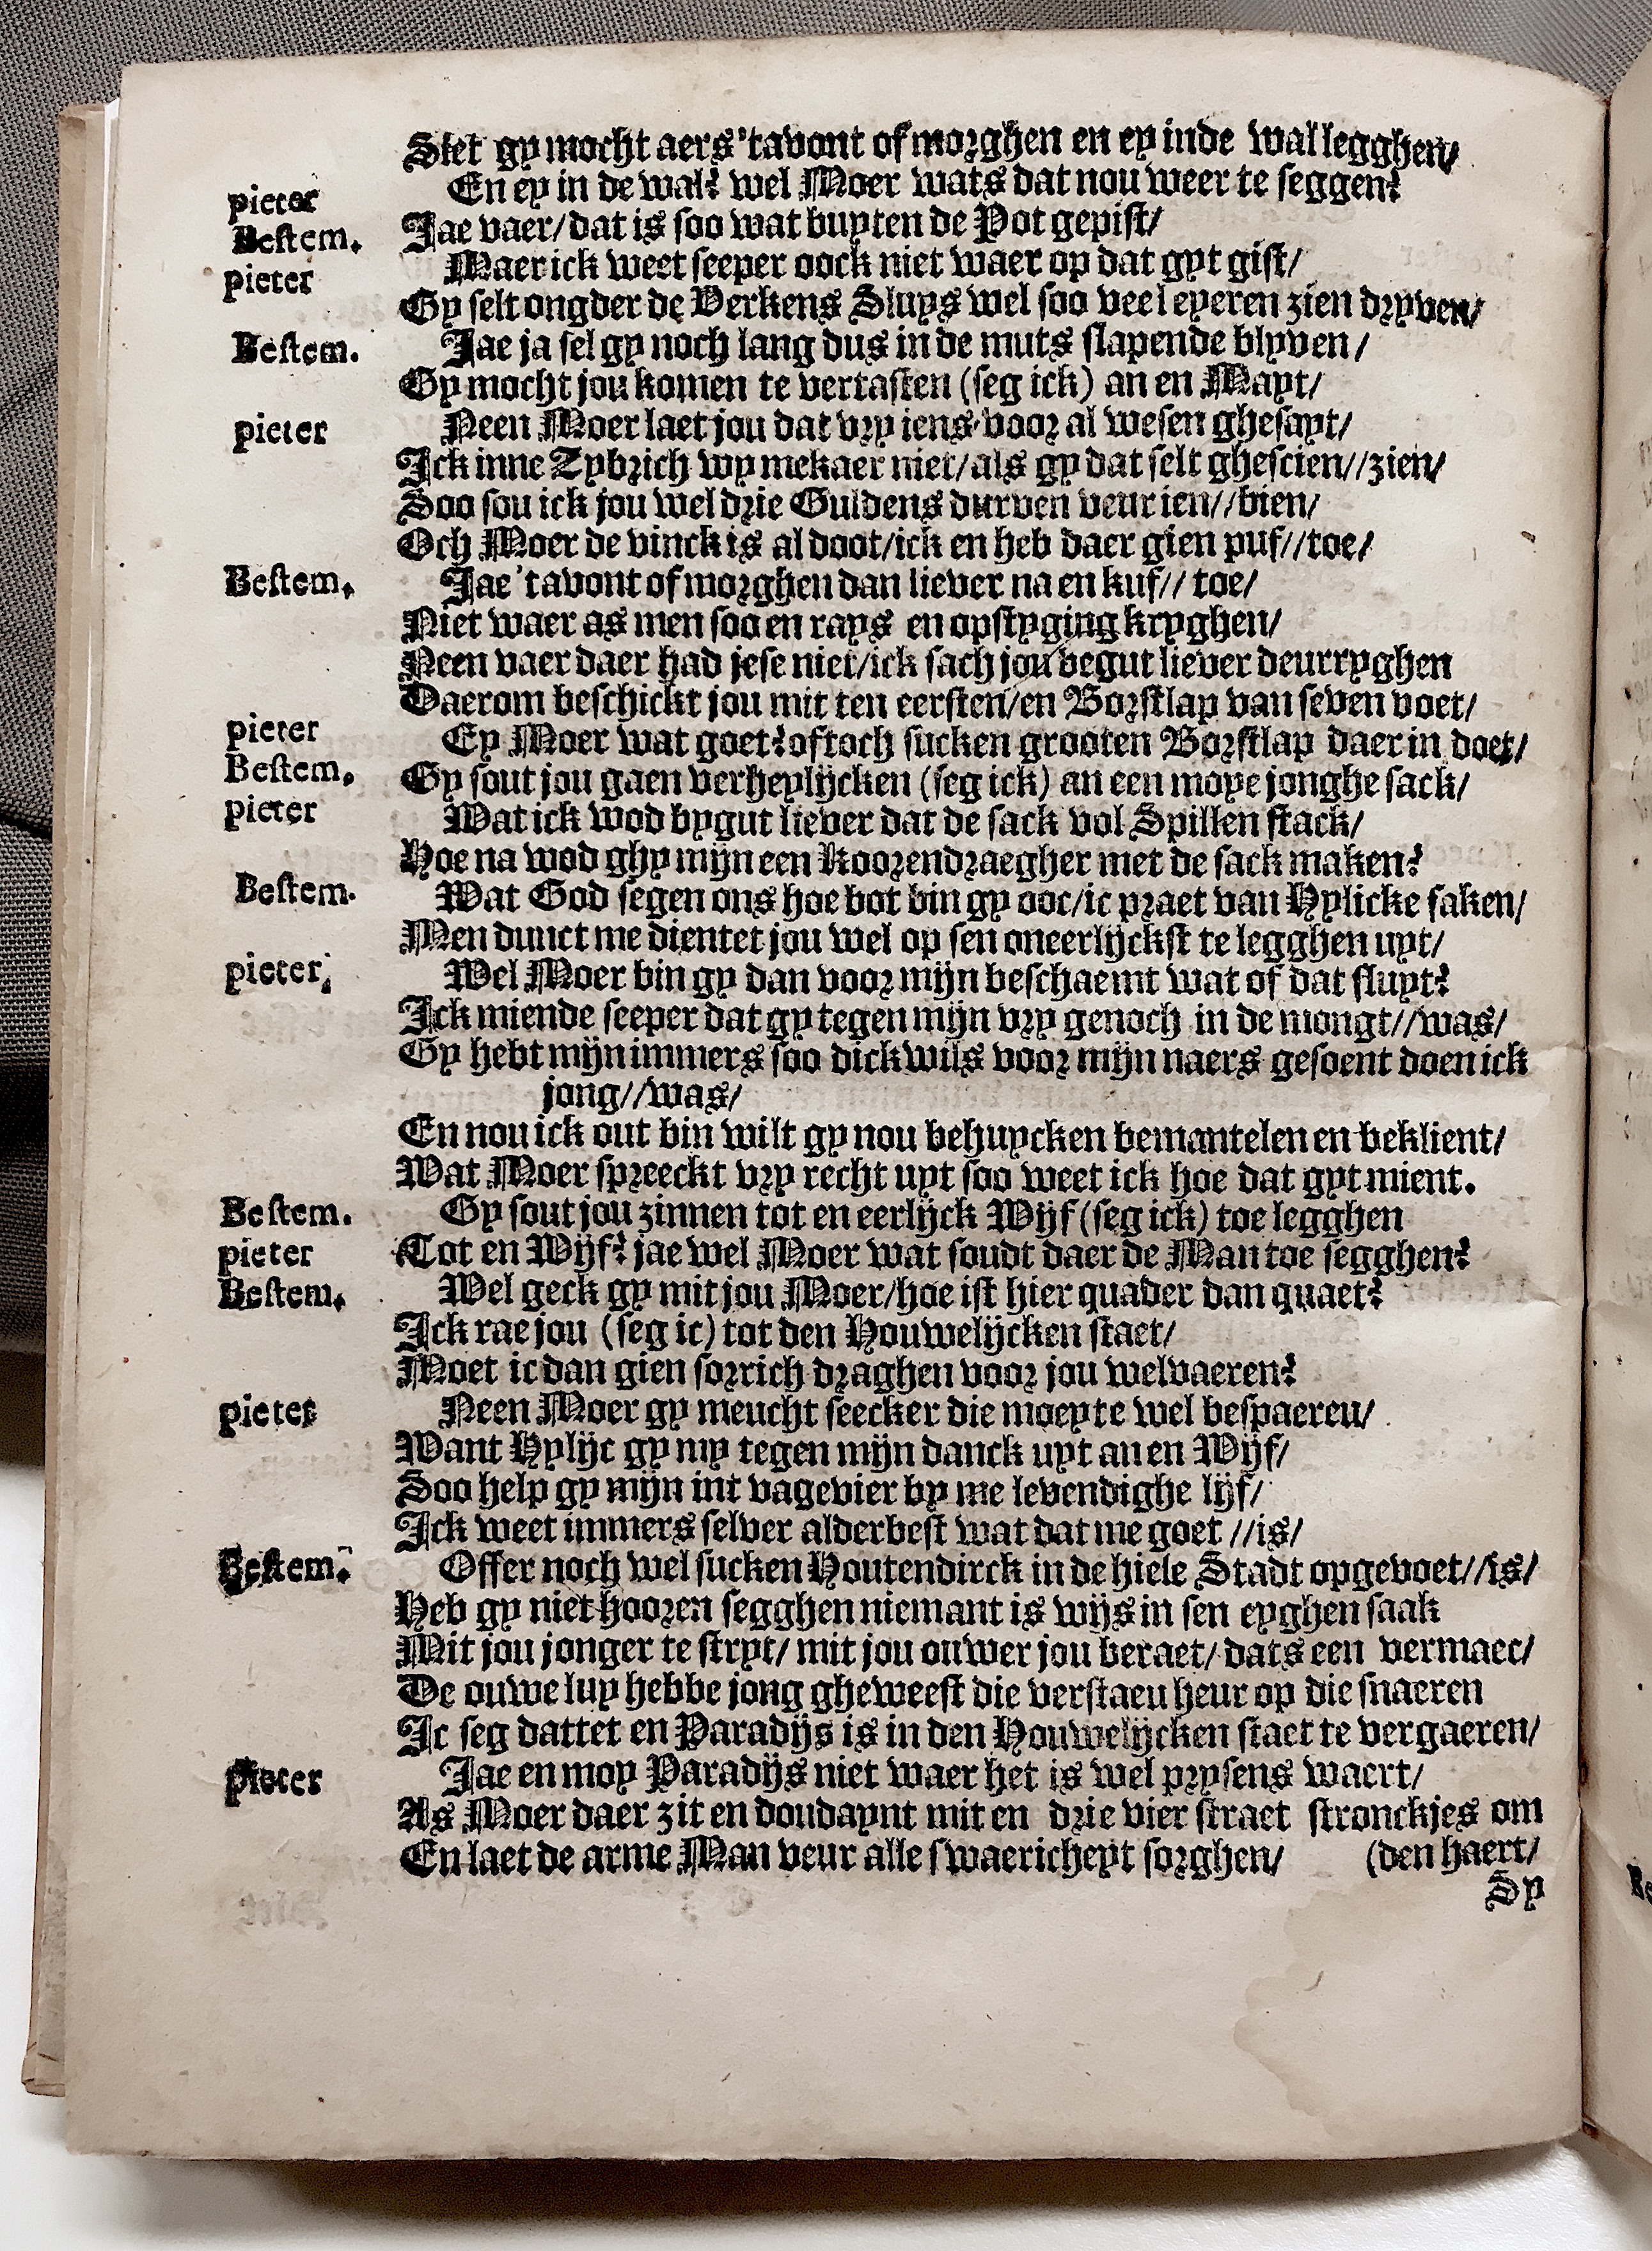 Siet gy mocht aers 'tavont of morghen en ey inde wal legghen/
pieter En ey in de wal? wel Moer wats dat nou weer te seggen?
Bestem. Jae vaer/ dat is soo wat buyten de Pot gepist/
pieter Maer ick weet seeper oock niet waer op dat gyt gist/
Gy selt ongder de Verkens Sluys wel soo veel eyeren zien dryven/
Bestem. Jae ja sel gy noch lang dus in de muts slapende blyven/
Gy mocht jou komen te vertasten (seg ick) an en Mayt/
pieter Neen Moer laet jou dat vry iens voor al wesen ghesayt/
Ick inne Tybrich wy mekaer niet/ als gy dat selt ghescien//zien/
Soo sou ick jou wel drie Guldens durven veur ien//bien/
Och Moer de vinck is al doot/ick en heb daer gien puf//toe/
Bestem. Jae 'tavont of morghen dan liever na en kuf// toe/
Niet waer as men soo en rays en opstyging kryghen/
Neen vaer daer had jese niet/ick sach jou begut liever deurryghen
Daerom beschickt jou mit ten eersten/en Borstlap van seven voet/
pieter Ey Moer wat goet? of toch sucken grooten Borstlap daer in doet/
Bestem. Gy sout jou gaen verheylijcken (seg ick) an een moye jonghe sack/
pieter Wat ick wod bygut liever dat de sack vol Spillen stack/
Hoe na wod ghy mijn een Koorendraegher met de sack maken?
Bestem. Wat God segen ons hoe bot bin gy ooc/ic praet van Hylicke saken/
Men dunct me dientet jou wel op sen oneerlijckst te legghen uyt/
pieter. Wel Moer bin gy dan voor mijn beschaemt wat of dat sluyt?
Ick miende seeper dat gy tegen mijn vry genoch in de mongt//was/
Gy hebt mijn immers soo dickwils voor mijn naers gesoent doen ick
jong//was/
En nou ick out bin wilt gy nou behuycken bemantelen en beklient/
Wat Moer spreeckt vry recht uyt soo weet ick hoe dat gyt mient.
Bestem. Gy sout jou zinnen tot en eerlijck Wijf (seg ick) toe legghen
pieter Tot en Wijf? jae wel Moer wat soudt daer de Man toe segghen?
Bestem. Wel geck gy mit jou Moer/hoe ist hier quader dan quaet?
Ick rae jou (seg ic) tot den Houwelijcken staet/
Moet ic dan gien sorrich draghen voor jou welvaeren?
pieter Neen Moer gy meucht seecker die moeyte wel bespaeren/
Want Hylijc gy my tegen mijn danck uyt an en Wijf/
Soo help gy mijn int vagevier by me levendighe lijf/
Ick weet immers selver alderbest wat dat me goet //is/
Bestem. Offer noch wel sucken Houtendirck in de hiele Stadt opgevoet//is/
Heb gy niet hooren segghen niemant is wijs in sen eyghen saak
Mit jou jonger te stryt/ mit jou ouwer jou beraet/ dats een vermaec/
De ouwe luy hebbe jong gheweest die verstaeu heur op die snaeren
Ic seg dattet en Paradijs is in den Houwelijcken staet te vergaeren/
pieter Jae en moy Paradijs niet waer het is wel prysens waert/
As Moer daer zit en doudaynt mit en drie vier straet stronckjes om
En laet de arme Man veur alle swaericheyt sorghen/ (den haert/
Sy